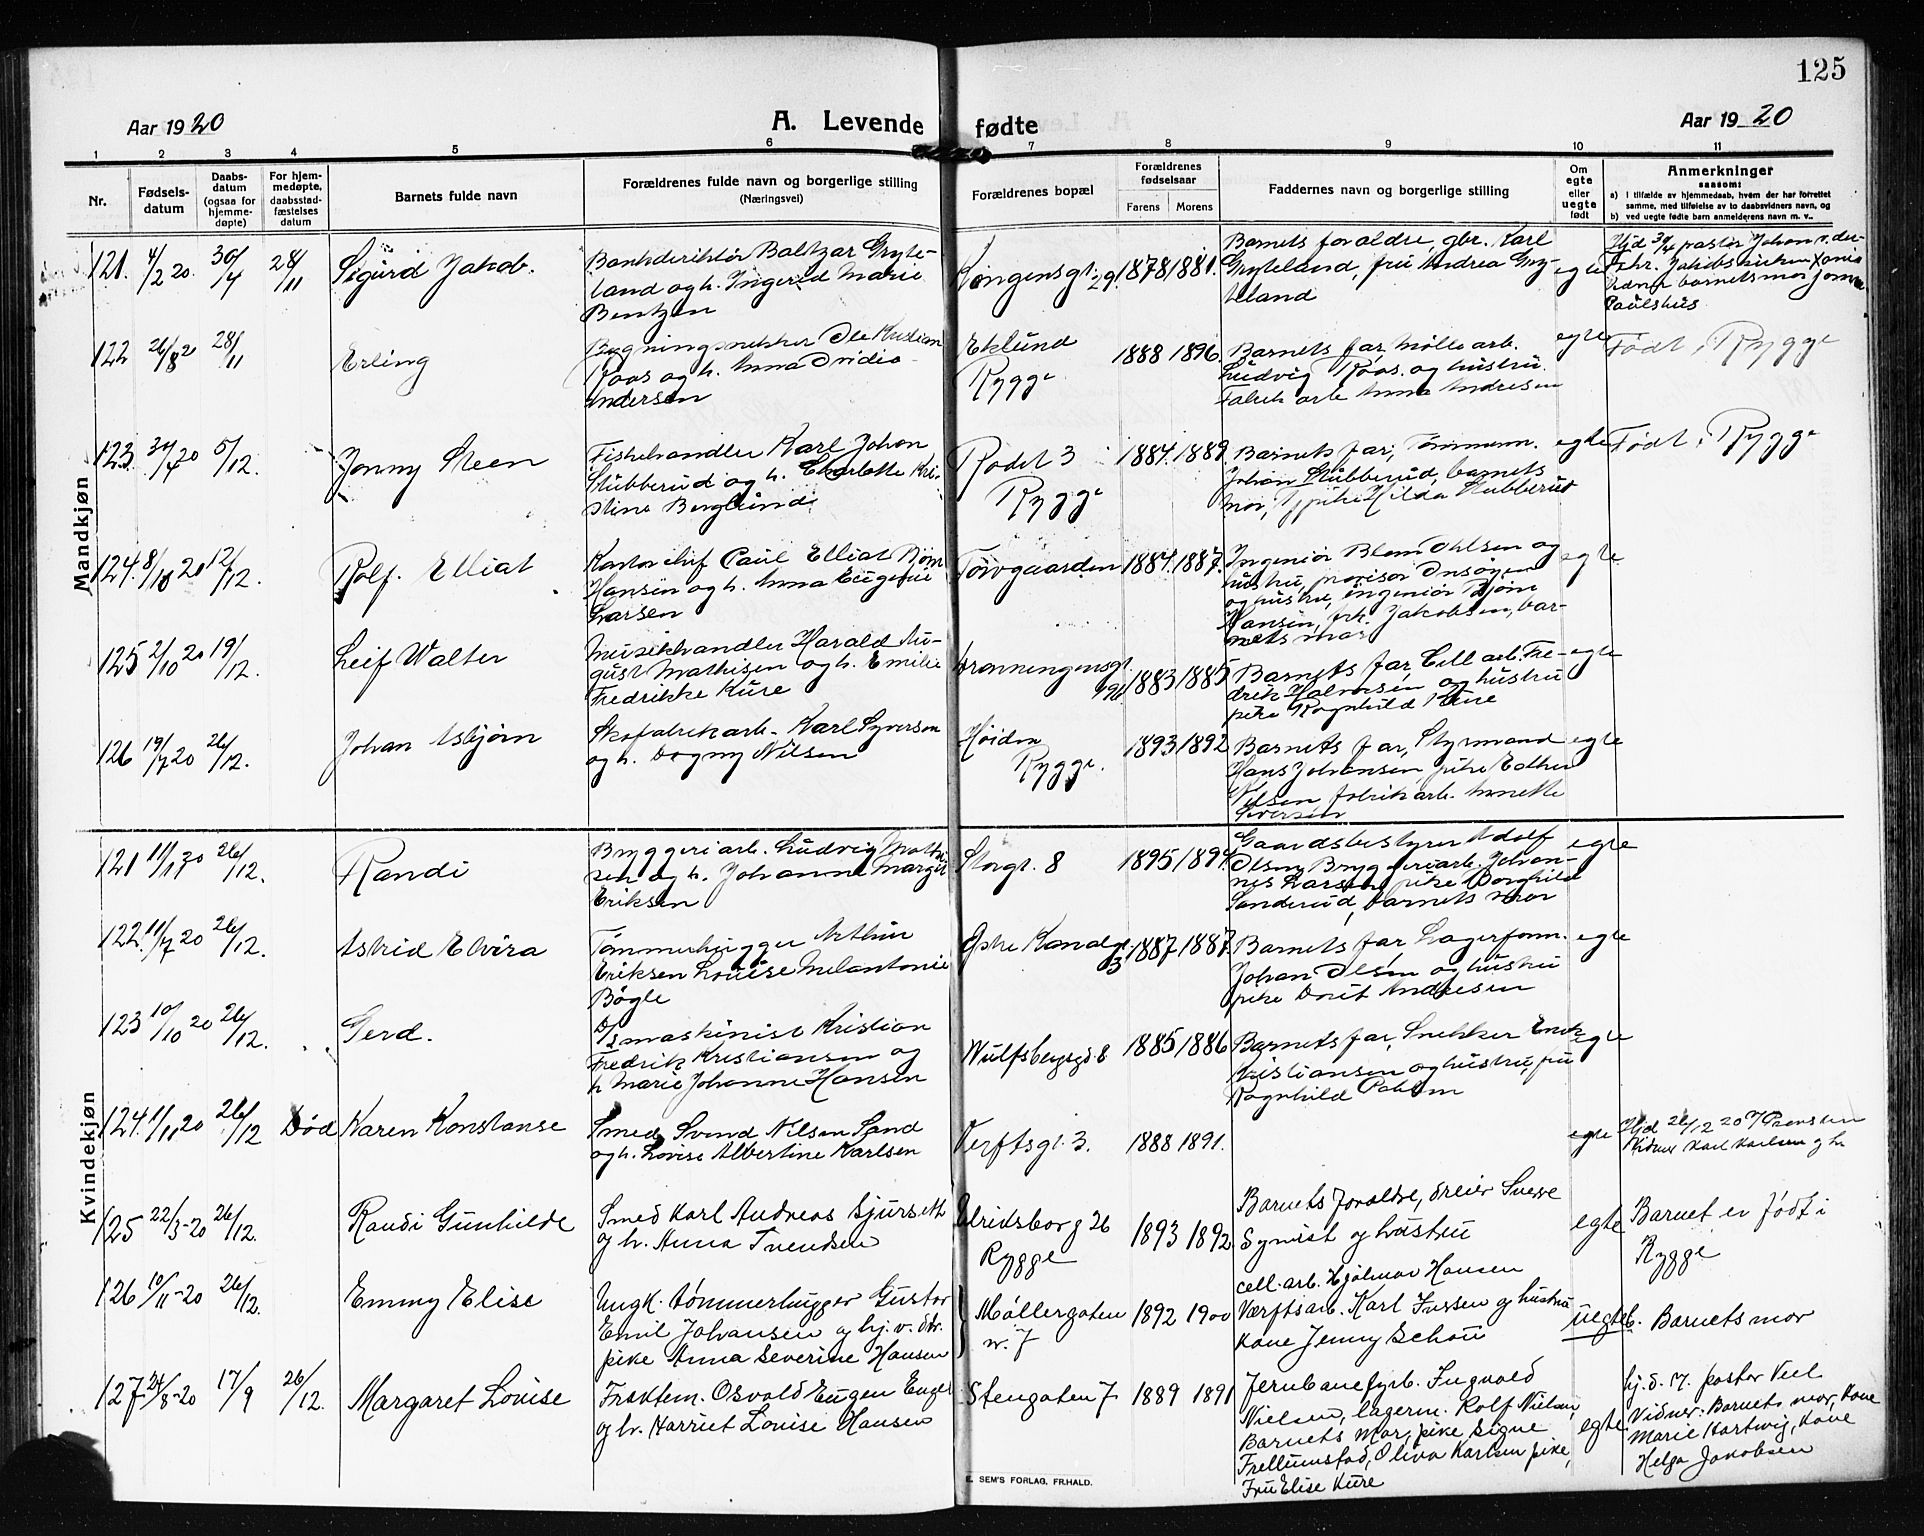 125
Aar 1920
A. Levende fødte
Aar 1920
1 2 3 4 5 6 7 8 9 10 11
Nr.
Fødsels-
datum
Daabs-
datum
(ogsaa for
hjemme-
døpte)
For hjem-
medøpte,
daabsstad-
fæstelses
datum
Barnets fulde navn
Forældrenes fulde navn og borgerlige stilling
(Næringsvei)
Forældrenes bopæl
Forældrenes
fødselsaar
Farens Morens
Faddernes navn og borgerlige stilling
Om
egte
eller
uegte
født
Anmerkninger
saasom:
a) I tilfælde av hjemmedaab, hvem der har forrettet
samme, med tilføielse av to daabsvidners navn, og
b) ved uegte fødte barn anmelderens navn m. v..
Mandkjøn
121. 4/2 20. 30/4 28/11 Sigurd Jakob.
Bankdirektør Baltzar Gryte-
land og h. Ingerid Marie
Bentzen
Kongensgt. 29. 1878 1881.
Barnets forældre, gbr. Karl
Gryteland, fru Andrea Gry-
teland
egte
Paulshus
122 26/8 20 28/11 Erling
Bygningssnekker Ole Kristian
Roos og h. Anna Ovidia
Andersen
Eklund
Rygge
1888 1896.
Barnets far, Møllearb.
Ludvig Roos. og hustru.
Fabrikarb Anna Andresen
egte
Født i Rygge
123. 5/12. Jonny Steen
Fiskehandler Karl Johan
Stubberud og h. Charlotte Kri-
stine Berglund.
Rødet 3
Rygge
1884. 1889.
Barnets far, Tømmerm.
Johan Stubberud, barnets
mor, Hilda Stubberud
egte
Født i Rygge
124. 8/10 20 12/12. Rolf. Elliat
Kontorchef Paul Elliat Bjørn
Hansen og h. Anna Eugenie
Larsen
Torvgaarden 1884. 1887.
Ingeniør Blom Ohlsen og
hustru, provisor
og hustru, ingeniør Bjørn
Hansen, frk. Jakobsen, bar-
nets mor
egte
125 2/10 20 19/12. Leif Walter
Musikhandler Harald Au-
gust Mathisen og h. Emilie
Fredrikke Kure
Dronningensgt.
1883 1885
Barnets far, Cell.arb. Fre-
drik Halvorsen og hustru
pike Ragnhild Kure
egte
126 19/7 20 26/12. Johan Asbjørn
Skofabrikarb. Karl Syversen
og h. Dagny Nilsen
Høiden
Rygge.
1893 1892
Barnets far, Styrmand
Hans Johansen, pike Esther
Nilsen, fabrikarb. Annette
Syversen
egte
Kvindekjøn
121 26/12. Randi
Bryggeriarb. Ludvig Mathi-
sen og h. Johanne Margit
Eriksen
Storgt. 8 1895 1894.
Gaardsbestyrer Adolf
Olsen, Bryggeriarb. Johan-
nes Larsen, pike Borghild
Sanderud, barnets mor
egte
122. 11/7 20 26/12. Astrid Elvira
Tømmerhugger Arthur
Eriksen Louise Melantonie
Bøgle
Østre Kanalgt.
3
1887 1887.
Barnets far, Lagerform.
Johan Olsen og hustru
pike Dorit Andresen
egte
123 10/10 20 26/12. Gerd.
D/s maskinist Kristian
Fredrik Kristiansen og
h Marie Johanne Hansen
Wulfsbergsgt 8 1885 1886
Barnets far, Snekker
Kristiansen og hustru, fru
Ragnhild
egte
124. 1/11 20 26/12 Død Karen Konstanse
Smed Svend Nilsen Sand
og h. Lovise Albertine Karlsen
Verftsgt. 3. 1888 1891.
egte
Vidner Karl Karlsen og h.
125 22/3-20 26/12. Randi Gunhilde
Smed Karl Andreas Sjurseth
og h. Anna Svendsen
Ulriksborg 26
Rygge
1893 1892
Barnets forældre, dreier Sverre
Syvist og hustru
egte
Barnet er født i
Rygge
126 10/11-20 26/12. Emmy Elise
Ungk. tømmerhugger Gustav
Emil Johansen og hj.v. dtr.
pike Anna Severine Hansen
Møllergaten
nr. 7
1892 1900
cell.arb. Hjalmar Hansen
Værftsarb. Karl Iversen og hustru
Kone Jenny Schou
uegte
b. Barnets mor
127 24/8-20 17/9 26/12. Margaret Lovise
Fraktem. Osvald Eugen Engel
og h. Harriet Lovise Hansen
Stengaten 7 1889 1891
Jernbanefyrb. Ingvald
Nielsen, lagerm. Rolf Nielsen,
Barnets mor, pike Signe
Frellumstad, Oliva Karlsen pike,
Fru Elise Kure
egte
hj.d. 17. pastor Veel
Vidner: Barnets mor, Kone
Marie Hartwig, Kone
Helga Jakobsen
E. SEM'S FORLAG, FR.HALD.